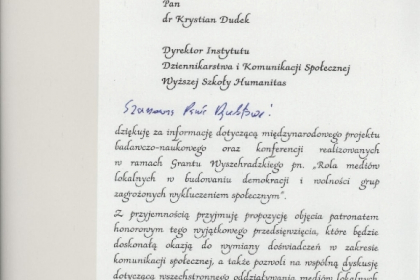 Pan
dr Krystian Dudek
Dyrektor Instytutu
Dziennikarstwa i Komunikacji Społecznej
Wyższej Szkoły Humanitas
Szanowny Panie Dyrektorze!
dziękuję za informację dotyczącą międzynarodowego projektu
badawczo-naukowego oraz konferencji realizowanych
w ramach Grantu Wyszehradzkiego pn. „Rola mediów
lokalnych w budowaniu demokracji i wolności grup
zagrożonych wykluczeniem społecznym".
Z przyjemnością przyjmuję propozycję objęcia patronatem
honorowym tego wyjątkowego przedsięwzięcia, które będzie
doskonałą okazją do wymiany doświadczeń w zakresie
komunikacji społecznej, a także pozwoli na wspólną dyskusję
dotyczącą wszechstronnego oddziaływania mediów lokalnych